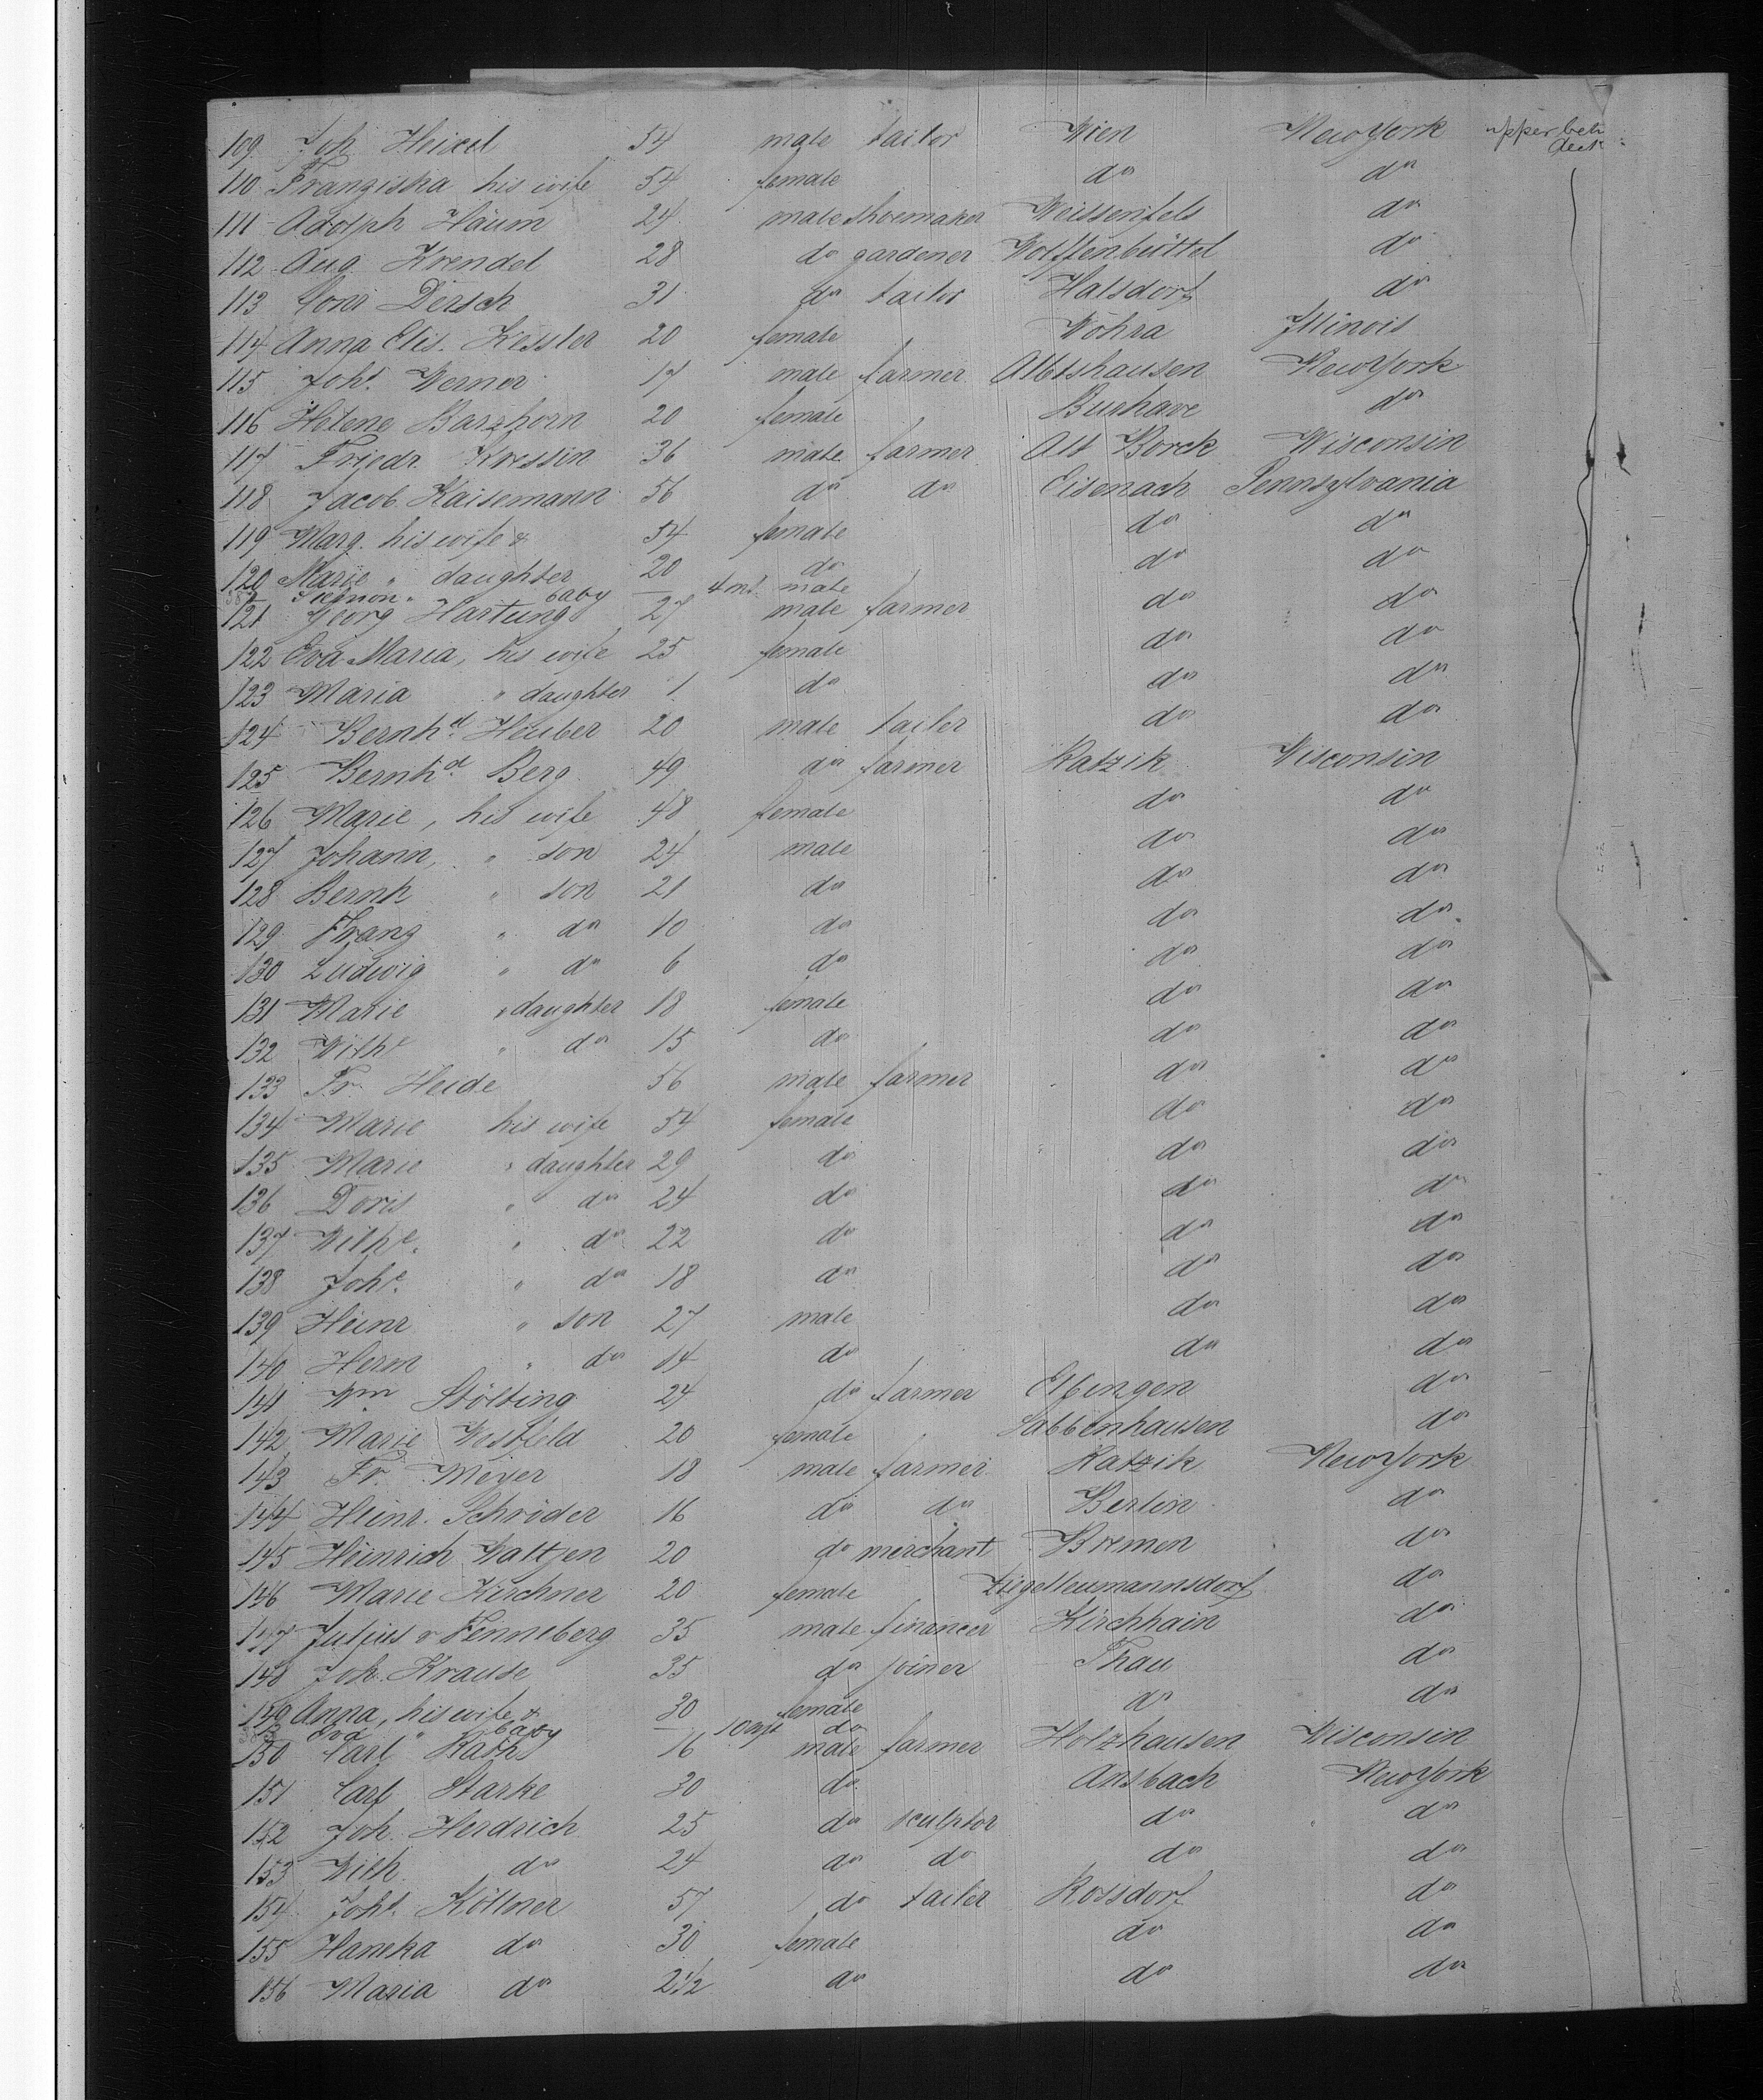 109 Joh Heixel 54 male tailor Wien New York upper betw deck
110 Franziska his wife 54 female do do
111 Adolph Häum 24 male Shoemaker Weissenfels do
112 Aug. Krendel 28 do gardener Wolffenbüttel do
113 Conr Dersch 31 do tailor Halsdorf do
114 Anna Elis. Kessler 20 female Wohra Illinois
115 Joh's. Werner 17 male farmer Albshausen New York
116 Helene Barzhorn 20 female Burhave do
117 Friedr Kressin 36 male farmer Alt Borck Wisconsin
118 Jacob Kaisemann 56 do do Eisenach Pennsylvania
119 Marg. his wife & 54 female do do
120 Marie " daughter 20 do do do
" baby 4 mt. male
121 Georg Hartung 27 male farmer do do
122 Eva Maria, his wife 25 female do do
123 Maria " daughter 1 do do do
124 Bernhd. Heuber 20 male tailer do do
125 Bernhd. Berg 49 do farmer Ratzik Wisconsin
126 Marie, his wife 48 female do do
127 Johann, " son 24 male do do
128 Bernh " son 21 do do do
129 Franz " do 10 do do do
130 Ludwig " do 6 do do do
131 Marie " daughter 18 female do do
132 Wilhe " do 15 do do do
133 Fr. Heide 56 male farmer do do
134 Marie his wife 54 female do do
135 Marie " daughter 29 do do do
136 Doris " do 24 do do do
137 Wilhe. " do 22 do do do
138 Johe. " do 18 do do do
139 Heinr " son 27 male do do
140 Herm " do 14 do do do
141 Wm Stölting 24 do farmer Elfengen do
142 Marie Westfeld 20 female Sabbenhausen do
143 Fr. Meyer 18 male farmer Ratzik New York
144 Heinr. Schröder 16 do do Berlin do
145 Heinrich Waltjen 20 do merchant Bremen do
146 Marie Kirchner 20 female do
147 Julius v Fenneberg 35 male financer Kirchhain do
148 Joh. Krause 35 do joiner Thau do
149 Anna, his wife & 30 female do do
Eva " baby 10 mt do
150 Carl Rath 16 male farmer Holzhausen Wisconsin
151 Carl Starke 30 do Ansbach New York
152 Joh. Herdrich 25 do sculptor do do
153 Wilh. do 24 do do do do
154 Joh's. Köllner 57 do tailer Rossdorf do
155 Haneka do 30 female do do
156 Maria do 2 1/2 do do do